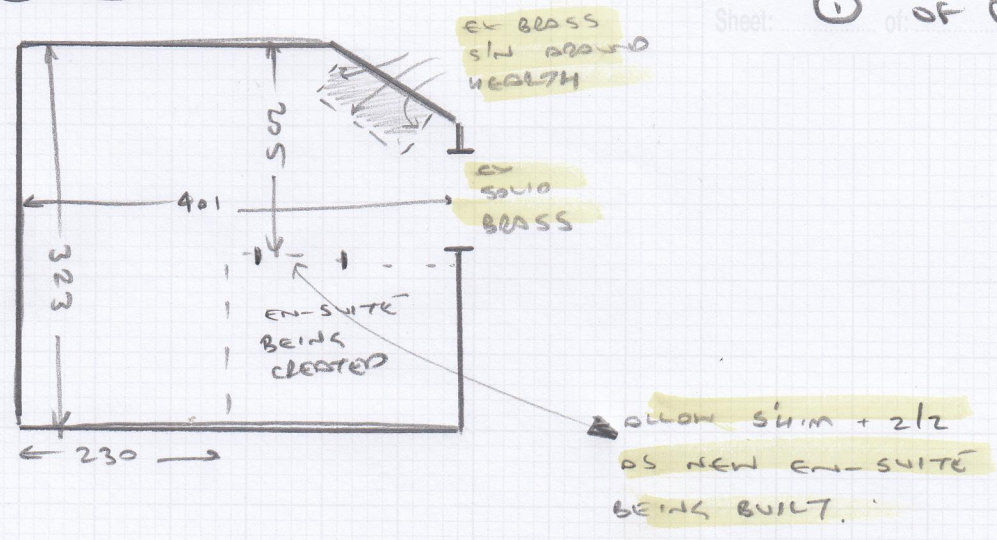 Sheet: ① of: OF
EX BRASS
S/N AROUND
HEALTH
205
EX
SOLID
BRASS
401
323
EN-SUITE
BEING
CREATED
230
ALLOW S'HIM + 2/2
AS NEW EN-SUITE
BEING BUILT.